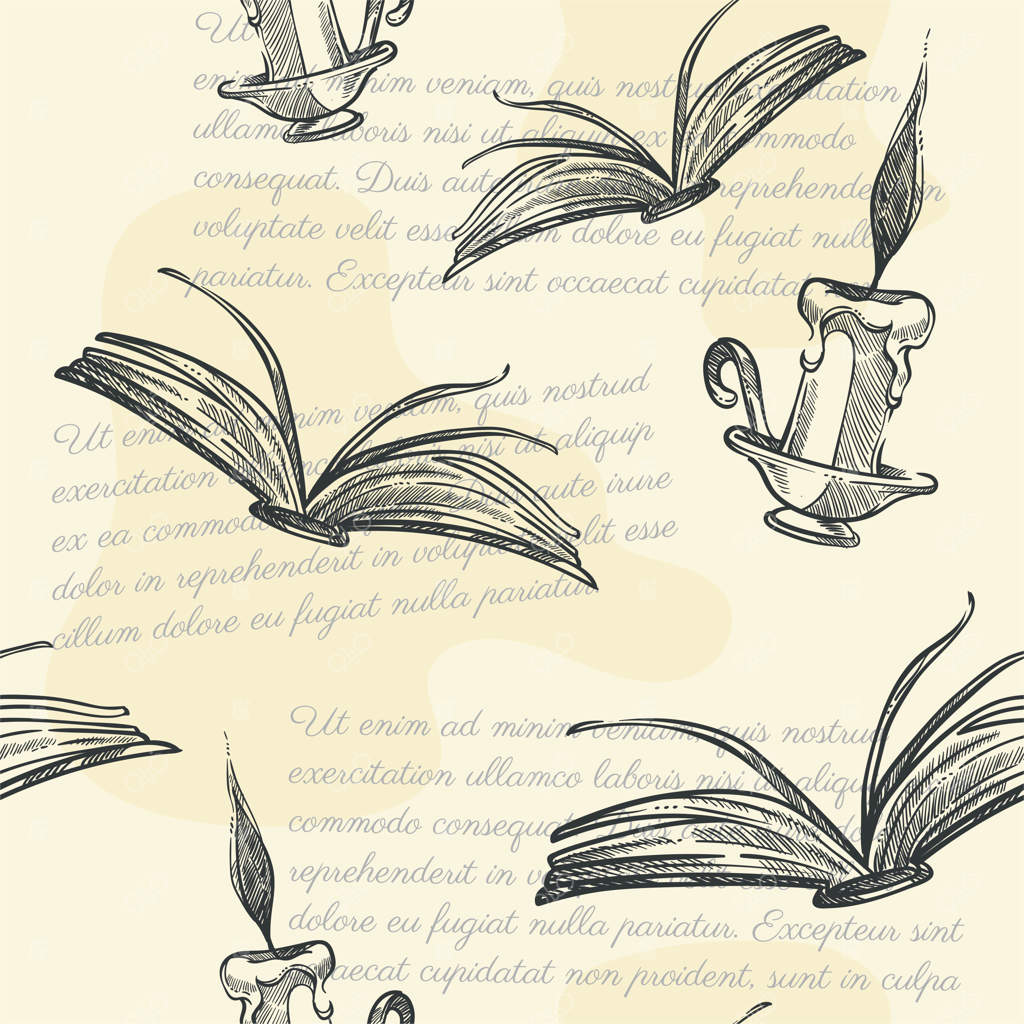 Ut
enim ad minim veniam, quis nostrud exercitation
ullamco laboris nisi ut aliquip ex commodo
consequat. Duis aute reprehenderit in
voluptate velit esse cillum dolore eu fugiat nulla
pariatur. Excepteur sint occaecat cupidatat
Ut enim minim veniam, quis nostrud
exercitation nisi ut aliquip
ex ea commodo Duis aute irure
dolor in reprehenderit in voluptate velit esse
cillum dolore eu fugiat nulla pariatur
Ut enim ad minim veniam, quis nostrud
exercitation ullamco laboris nisi ut aliquip
commodo consequat. Duis aute dolor
reprehenderit in velit esse
dolore eu fugiat nulla pariatur. Excepteur sint
occaecat cupidatat non proident, sunt in culpa